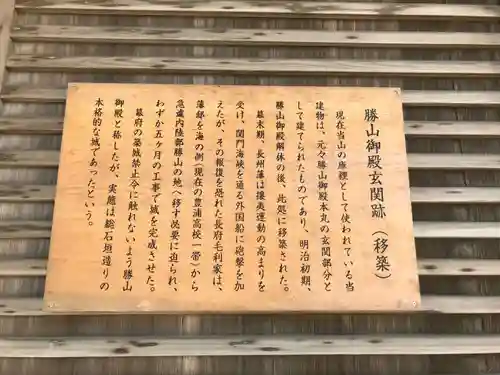 勝山御殿玄関跡(移築)
現在当山の庫裡として使われている当
建物は、元々勝山御殿本丸の玄関部分と
して建てられたものであり、明治初期、
勝山御殿解体の後、此処に移築された。
幕末期、長州藩は攘夷運動の高まりを
受け、関門海峡を通る外国船に砲撃を加
えたが、その報復を恐れた長府毛利家は、
藩邸を海の側(現在の豊浦高校一帯)から
急遽内陸部勝山の地へ移す必要に迫られ、
わずか五ヶ月の工事で城を完成させた。
幕府の築城禁止令に触れないよう勝山
御殿と称したが、実態は総石垣造りの
本格的な城であったという。